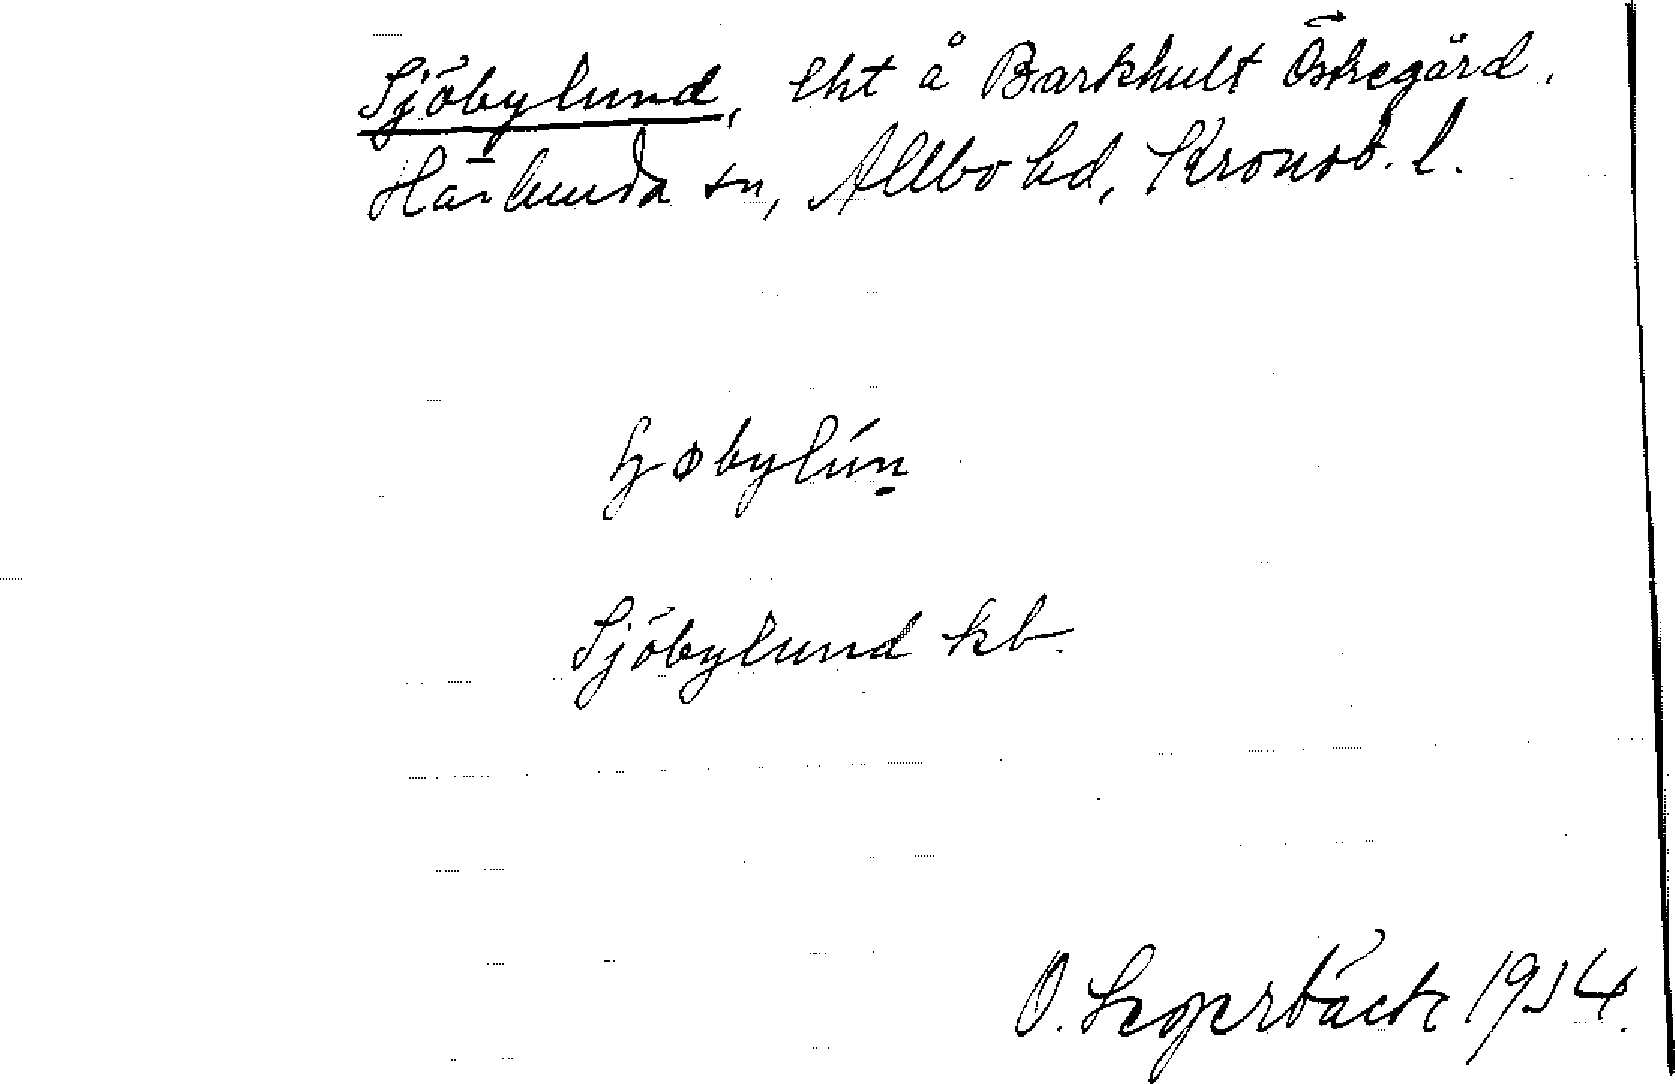 Sjöbylund, lht å Barkhult Östregård,
Härlunda sn, Allbo hd, Kronob. l.
Sjöbylund kb.
O. 1914.